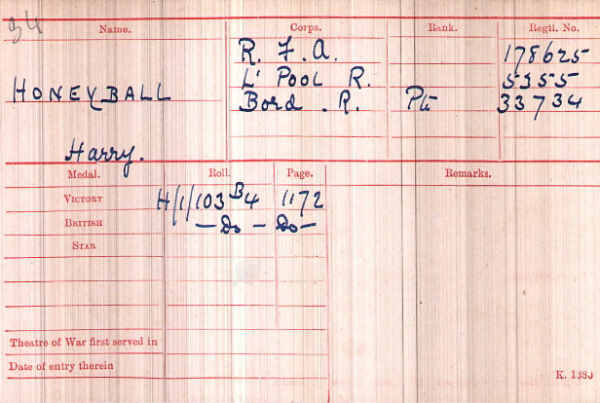 Name. Corps. Rank. Regtl. No.
R. F. A. 178625
L' POOL R. 5355
HONEYBALL Bord. R. Pte 33734
Harry.
Medal. Roll. Page. Remarks.
VICTORY H/1/103 B4 1172
BRITISH —Do — Do—
STAR
Theatre of War first served in
Date of entry therein
K. 1380